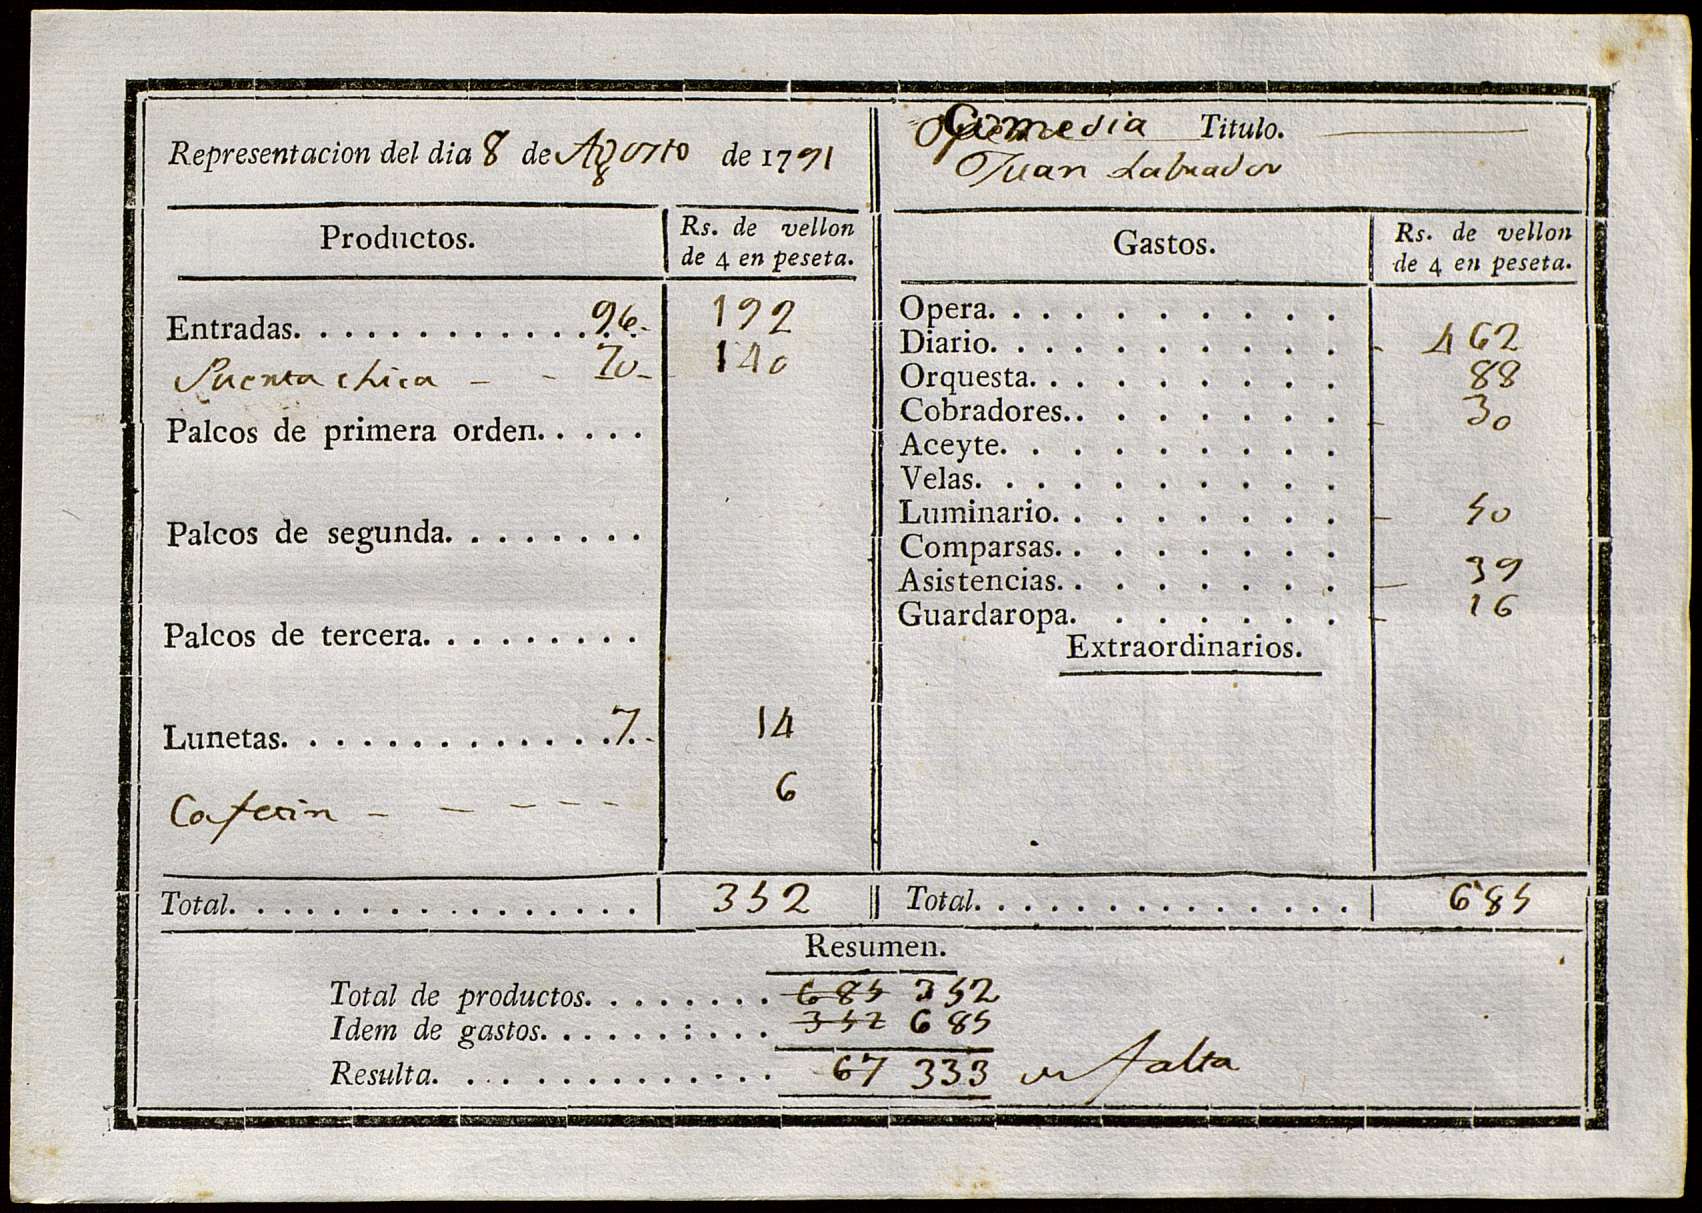 Representacion del dia 8 de Agosto de 1791
Comedia Titulo.
Juan Labrador
Productos. Rs. de vellon de 4 en peseta.
Entradas. 96 192
Puerta chica 70 140
Palcos de primera orden.
Palcos de segunda.
Palcos de tercera.
Lunetas. 7 14
Cafetin 6
Total. 352
Gastos. Rs. de vellon de 4 en peseta.
Opera.
Diario. 462
Orquesta. 88
Cobradores. 30
Aceyte.
Velas.
Luminario. 50
Comparsas.
Asistencias. 39
Guardaropa. 16
Extraordinarios.
Total. 685
Resumen.
Total de productos. 685 352
Idem de gastos. 352 685
Resulta. 67 333 falta